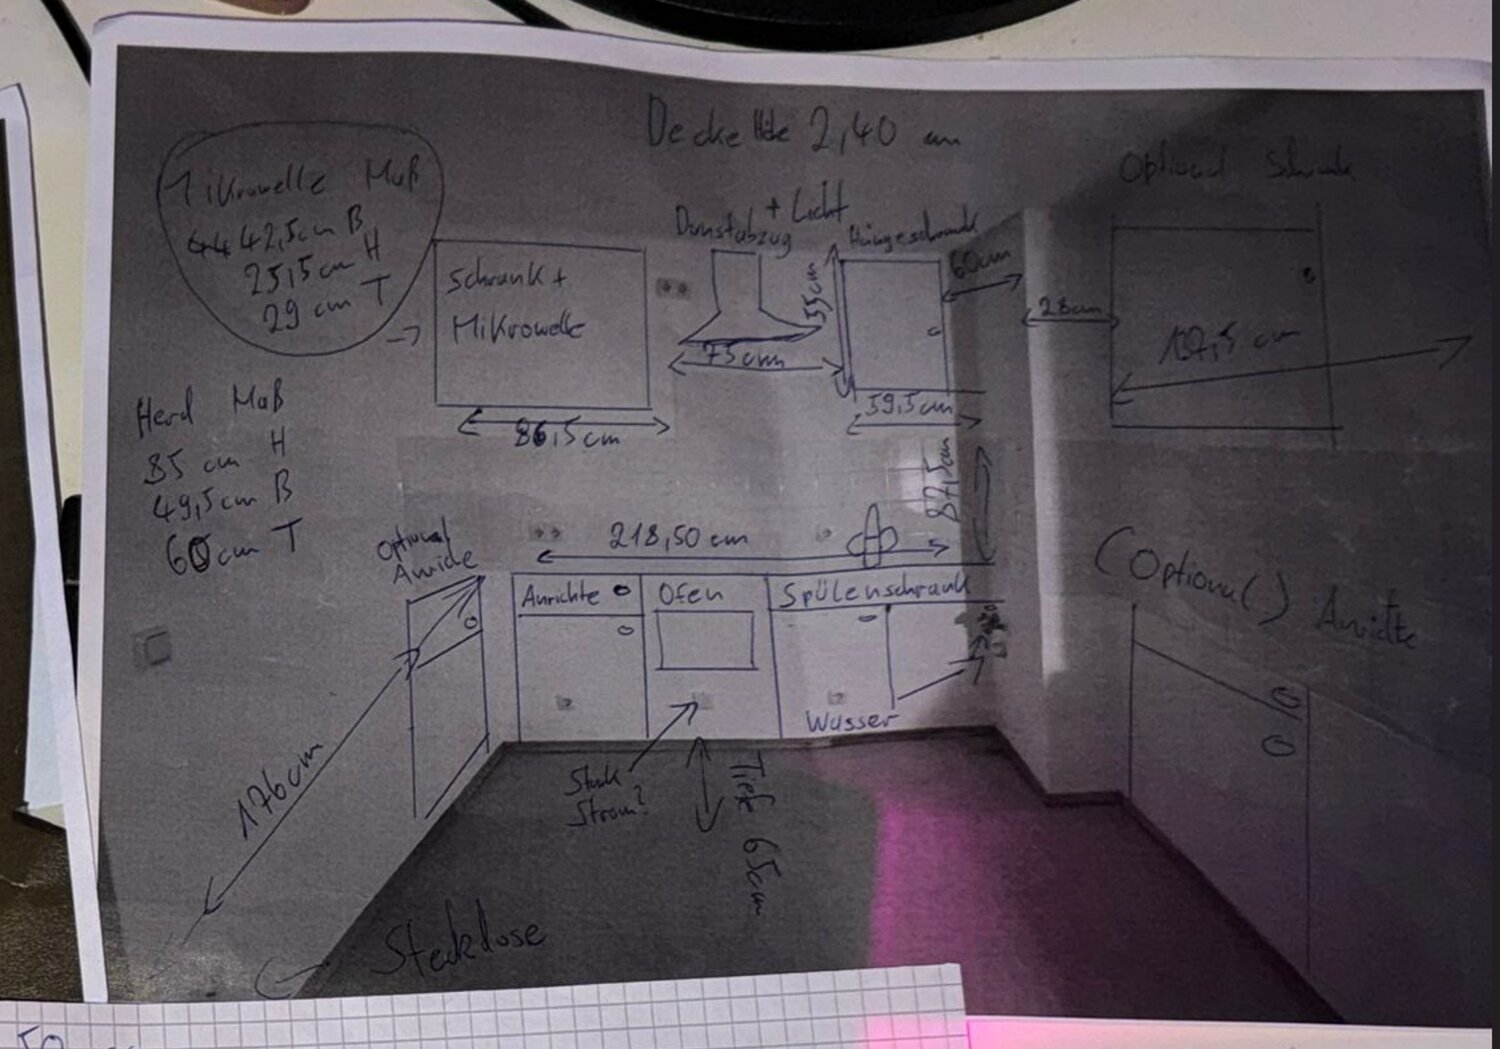 Decke Höhe 2,40 cm
Mikrowelle Maß
42,5cm B
25,5cm H
29 cm T
Herd Maß
85 cm H
49,5cm B
60cm T
Schrank +
Mikrowelle
86,5cm
Dunstabzug
+ Licht
75cm
Hängeschrank
55cm
59,5cm
60cm
28cm
Optional Schrank
137,5 cm
87,5cm
218,50 cm
Optional
Anrichte
Anrichte
Ofen
Spülenschrank
Wasser
(Optional) Anrichte
176cm
Strom?
Tiefe 65cm
Steckdose
50